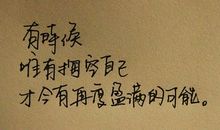 有時候
唯有掏空自己
才会有再度盈滿的可能。